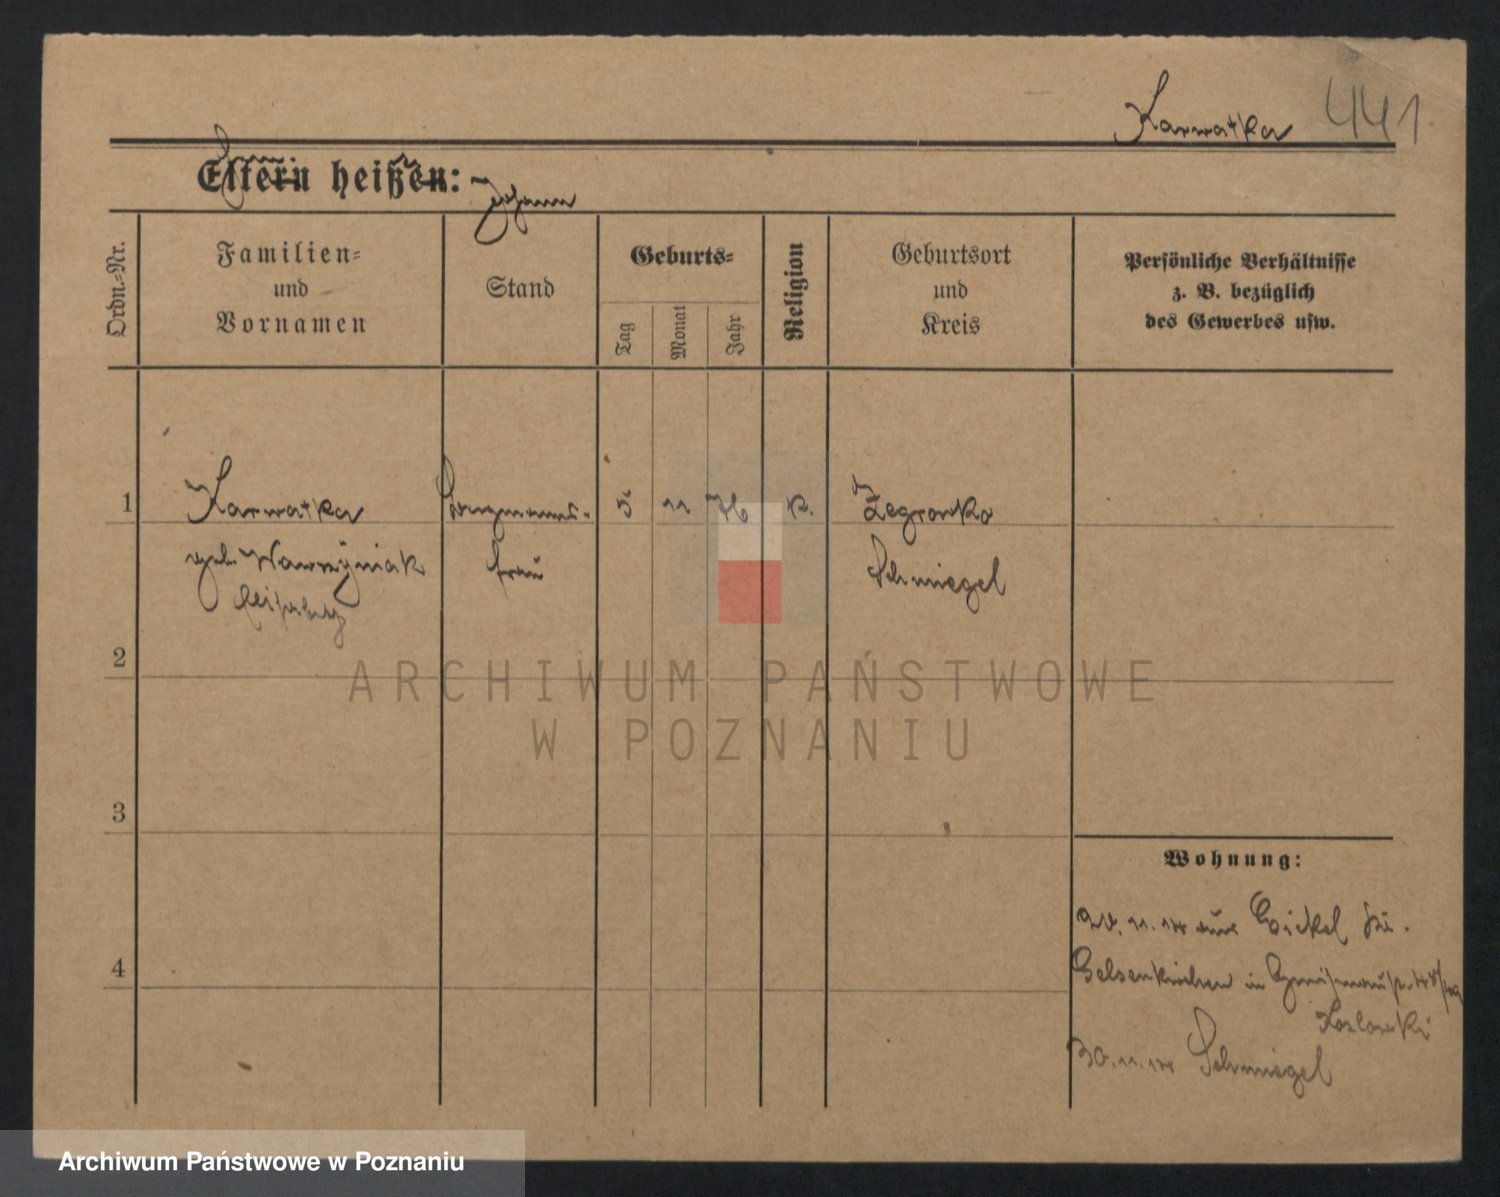 Karwatka 441.
Eltern heißen:
Johann
Ordn.-Nr.
Familien-
und
Vornamen
Stand
Geburts-
Tag
Monat
Jahr
Religion
Geburtsort
und
Kreis
Persönliche Verhältnisse
z. B. bezüglich
des Gewerbes usw.
1 Karwatka Bergmanns- 5 11 76 k. Zegrowko
geb. Wawrzyniak frau Schmiegel
Elisabeth
2
3
4
Wohnung:
20.11.14 aus Eickel Kr.
Gelsenkirchen in
Kozlowski
30.11.14 Schmiegel
ARCHIWUM PAŃSTWOWE
W POZNANIU
Archiwum Państwowe w Poznaniu